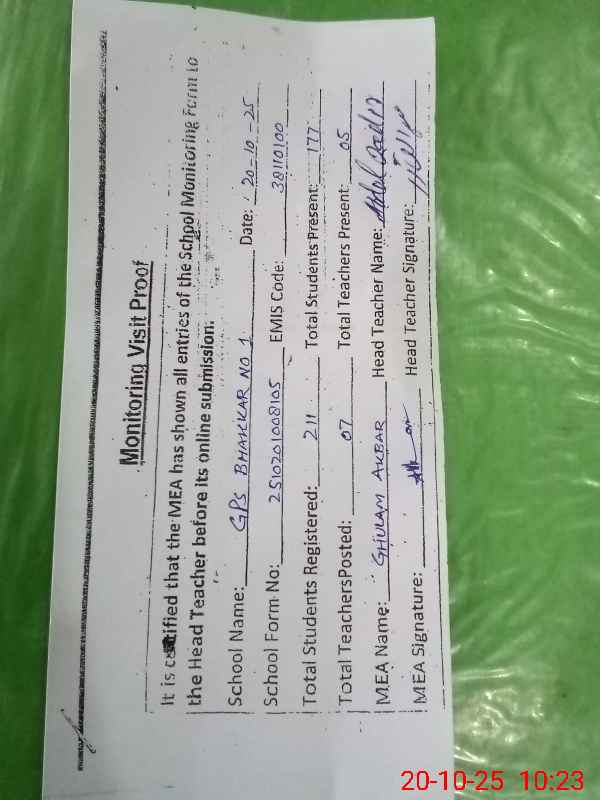 Monitoring Visit Proof
It is certified that the MEA has shown all entries of the School Monitoring Form to
the Head Teacher before its online submission.
School Name: GPS BHAKKAR NO 1 Date: 20-10-25
School Form No: 2510201008105 EMIS Code: 38110100
Total Students Registered: 211 Total Students Present: 177
Total TeachersPosted: 07 Total Teachers Present: 05
MEA Name: GHULAM AKBAR Head Teacher Name:
MEA Signature: Head Teacher Signature:
20-10-25 10:23